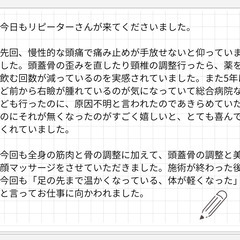 今日もリピーターさんが来てくださいました。
先回、慢性的な頭痛で痛み止めが手放せないと仰っていま
した。頭蓋骨の歪みを直したり頸椎の調整行ったら、薬を
飲む回数が減っているのを実感されていました。また5年ほ
ど前から右瞼が腫れているのが気になっていて総合病院な
ども行ったのに、原因不明と言われたのであきらめていた
のにそれが無くなったのがすごく嬉しいと、とても喜んで
くれていました。
今回も全身の筋肉と骨の調整に加えて、頭蓋骨の調整と美
顔マッサージをさせていただきました。施術が終わった後
今回も「足の先まで温かくなっている、体が軽くなった」
と言ってお仕事に向かわれました。